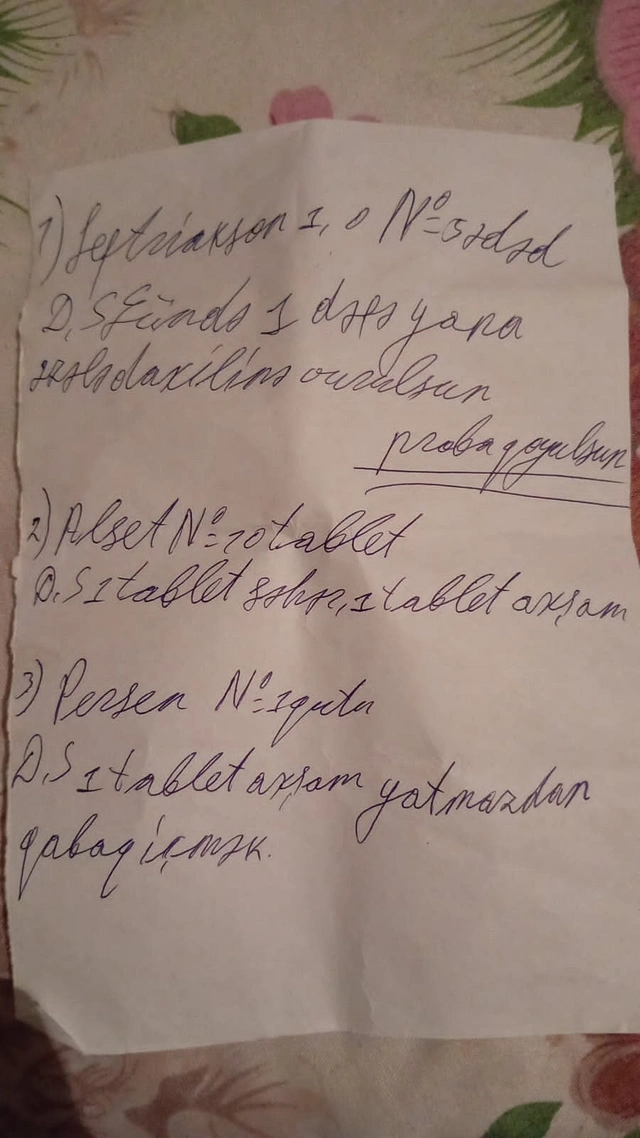 1) Seftriakson 1,0 N°=5 ədəd
D,S Gündə 1 dəfə yana
əzələdaxilinə vurulsun
proba qoyulsun
2) Alset N°=10 tablet
D.S 1 tablet səhər, 1 tablet axşam
3) Persen N°=1 qutu
D,S 1 tablet axşam yatmazdan
qabaq içmək.